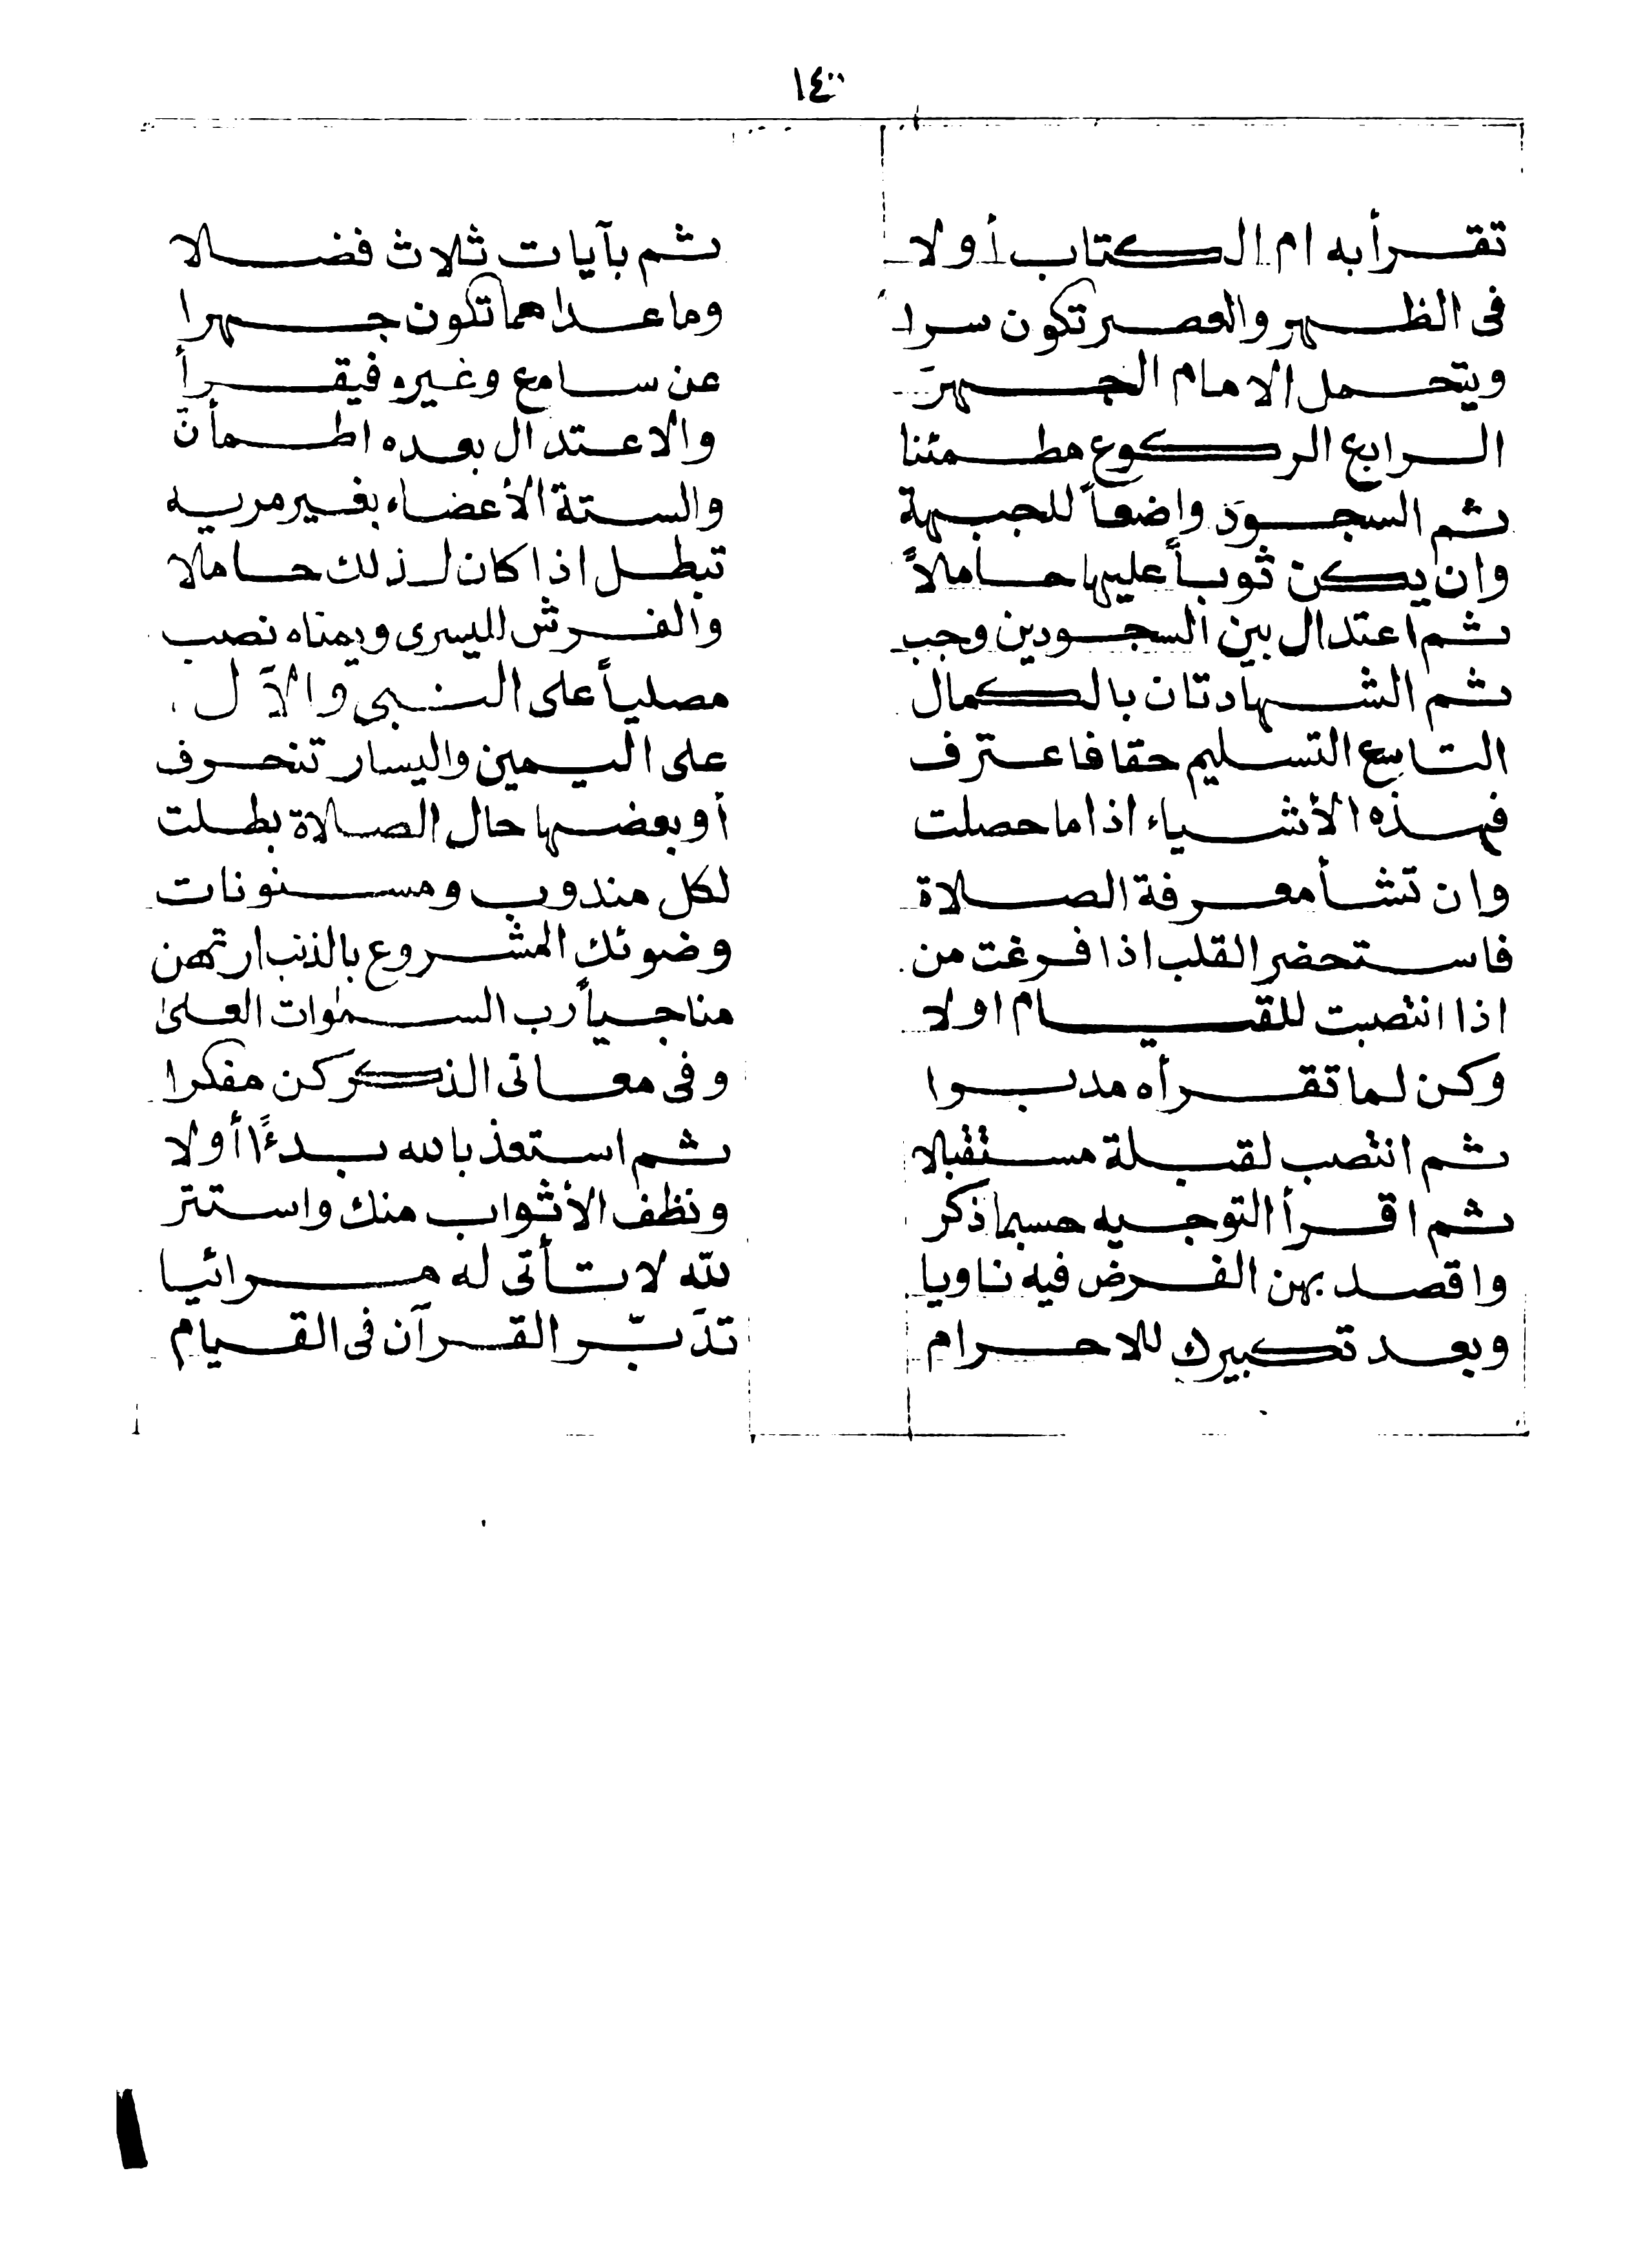 ١٤
تقرأ به ام الكتاب أولا ثم بآيات ثلاث فضلا
فى الظهر والعصر تكون سرا وما عدا هما تكون جهرا
ويتحمل الامام الجهرَ عن سامع وغيره فيقرأ
الرابع الركوع مطمئنا والاعتدال بعده اطمأن
ثم السجودَ واضعاً للجبهة والستة الأعضاء بغير مريه
وان يكن ثوباً عليها حاملاً تبطل اذا كان لذلك حاملا
ثم اعتدال بين السجودين وجب والفرش لليسرى ويمناه نصب
ثم الشهادتان بالكمال مصلياً على النبي والآل
التاسع التسليم حقا فاعترف على اليمين واليسار تنحرف
فهذه الأشياء اذا ما حصلت أو بعضها حال الصلاة بطلت
وان تشأ معرفة الصلاة لكل مندوب ومسنونات
فاستحضر القلب اذا فرغت من وضوئك المشروع بالذنب ارتهن
اذا انتصبت للقيام اولا مناجياً رب السمٰوات العلىٰ
وكن لما تقرأه مدبرا وفى معانى الذكر كن مفكرا
ثم انتصب لقبلة مستقبلا ثم استعذ بالله بدءًا أولا
ثم اقرأ التوجيه حسبما ذكر ونظف الأثواب منك واستتر
واقصد بهن الفرض فيه ناويا لله لا تأتى له مرائيا
وبعد تكبيرك للاحرام تدَبّر القرآن فى القيام